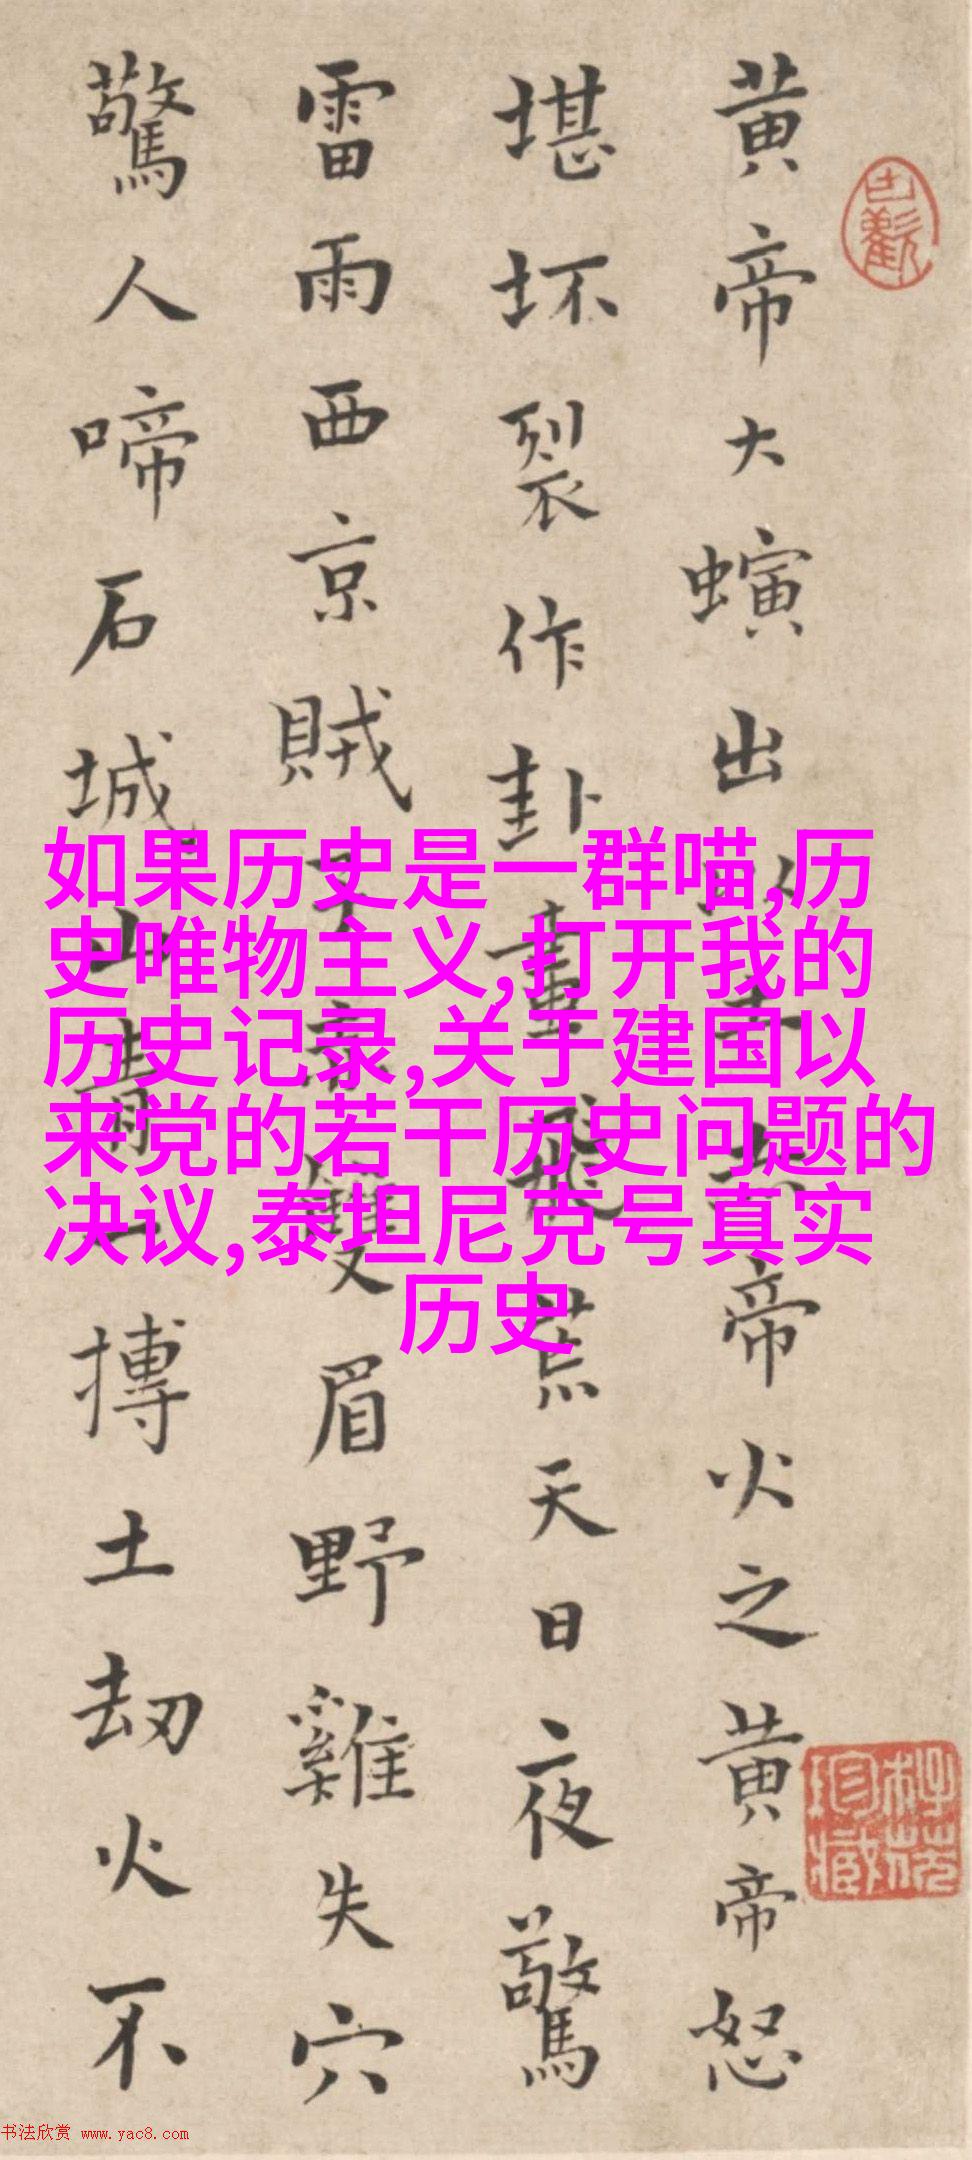 黄帝大螾出帝火之黄帝怒
堪坏裂作卦天日夜驚
雷雨西京賊眉野雞失穴
驚人啼石城山搏土刧火不
如果历史是一群喵,历
史唯物主义,打开我的
历史记录,关于建国以
来党的若干历史问题的
决议,泰坦尼克号真实
历史
书法欣赏 www.yac8.com